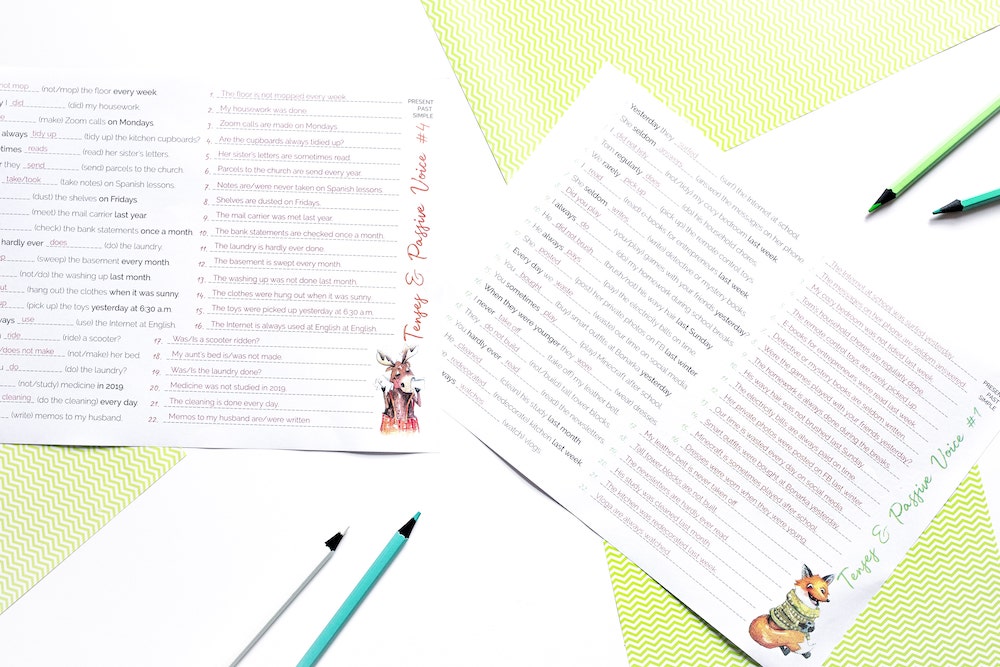 not mop (not/mop) the floor every week.
I did (did) my housework.
(make) Zoom calls on Mondays.
always tidy up (tidy up) the kitchen cupboards?
reads (read) her sister's letters.
they send (send) parcels to the church.
take/took (take notes) on Spanish lessons.
(dust) the shelves on Fridays.
(meet) the mail carrier last year.
(check) the bank statements once a month.
hardly ever does (do) the laundry.
(sweep) the basement every month.
(not/do) the washing up last month.
(hang out) the clothes when it was sunny.
(pick up) the toys yesterday at 6:30 a.m.
use (use) the Internet at English.
ride (ride) a scooter?
does not make (not/make) her bed.
do (do) the laundry?
(not/study) medicine in 2019.
cleaning (do the cleaning) every day.
(write) memos to my husband.
1. The floor is not mopped every week.
2. My housework was done.
3. Zoom calls are made on Mondays.
4. Are the cupboards always tidied up?
5. Her sister's letters are sometimes read.
6. Parcels to the church are send every year.
7. Notes are/were never taken on Spanish lessons.
8. Shelves are dusted on Fridays.
9. The mail carrier was met last year.
10. The bank statements are checked once a month.
11. The laundry is hardly ever done.
12. The basement is swept every month.
13. The washing up was not done last month.
14. The clothes were hung out when it was sunny.
15. The toys were picked up yesterday at 6:30 am.
16. The Internet is always used at English at English.
17. Was/Is a scooter ridden?
18. My aunt's bed is/was not made.
19. Was/Is the laundry done?
20. Medicine was not studied in 2019.
21. The cleaning is done every day.
22. Memos to my husband are/were written.
PRESENT
PAST
SIMPLE
Tenses & Passive Voice #4
Yesterday they surfed the internet at school.
She seldom (answer) the messages on her phone.
I did not tidy (not/tidy) my cozy bedroom last week.
Tom regularly does (do) the household chores.
We rarely pick up (pick up) the remote control toys.
I read (read) e-books for entrepreneurs last week.
She seldom writes (write) detective or sky-fi stories.
Did you play (you/play) games with your friends yesterday?
I always do (do) my homework during the school break.
He did not brush (not/brush) his wavy hair last Sunday.
He always pays (pay) the electricity bills on time.
She posted (post) her private photos on FB last winter.
Every day we waste (waste) our time on social media.
You bought (buy) smart outfits at Bonarka yesterday.
You sometimes play (play) Minecraft after school.
When they were younger they wore (wear) dresses.
I never take off (take off) my leather belt.
They do not build (not/build) tall tower blocks.
You hardly ever read (read) the newsletters.
cleaned (clean) his study last month.
redecorated (redecorate) kitchen last week.
watches (watch) vlogs.
The Internet was surfed at school yesterday.
The messages on her phone are seldom answered.
My cozy bedroom was not tidied last week.
Tom's household chores are regularly done.
The remote control toys are rarely picked up.
E-books for entrepreneurs were read last week.
Detective or sky-fi stories are seldom written.
Were the games played with your friends yesterday?
The homework is always done during the breaks.
His wavy hair was not brushed last Sunday.
The electricity bills are always paid on time.
Her private photos were posted on FB last winter.
Our time is wasted every day on social media.
Smart outfits were bought at Bonarka yesterday.
Minecraft is sometimes played after school.
Dresses were worn when they were young.
My leather belt is never taken off.
Tall tower blocks are not built.
The newsletters are hardly ever read.
His study was cleaned last month.
The kitchen was redecorated last week.
Vlogs are always watched.
PRESENT
PAST
SIMPLE
Tenses & Passive Voice #1